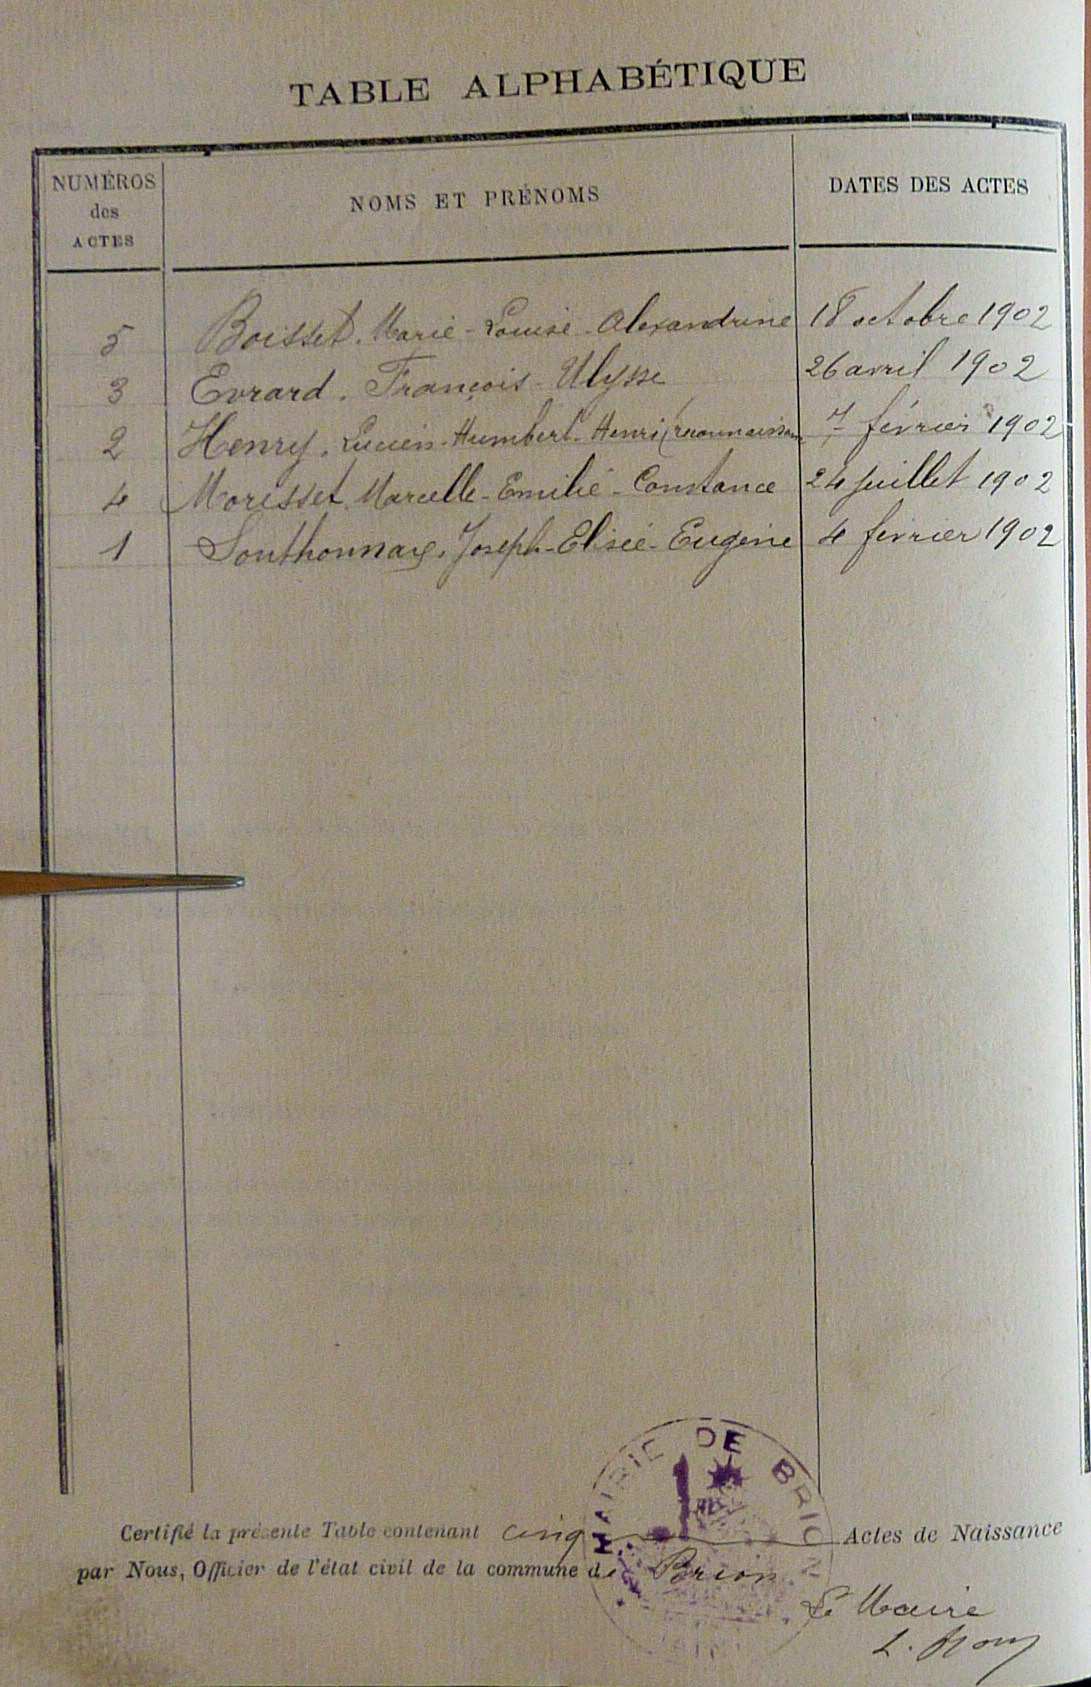 TABLE ALPHABÉTIQUE
NUMÉROS des ACTES
NOMS ET PRÉNOMS
DATES DES ACTES
5 Boisset. Marie - Louise - Alexandrine 18 octobre 1902
3 Evrard. François - Ulysse 26 avril 1902
2 Henry. Lucien - Humbert - Henri (reconnaissance 7 février 1902
4 Morisset Marcelle - Emilie - Constance 24 juillet 1902
1 Southonnax. Joseph - Elisée - Eugène 4 février 1902
MAIRIE DE BRION
Certifié la présente Table contenant cinq Actes de Naissance
par Nous, Officier de l'état civil de la commune de Brion
Le Maire